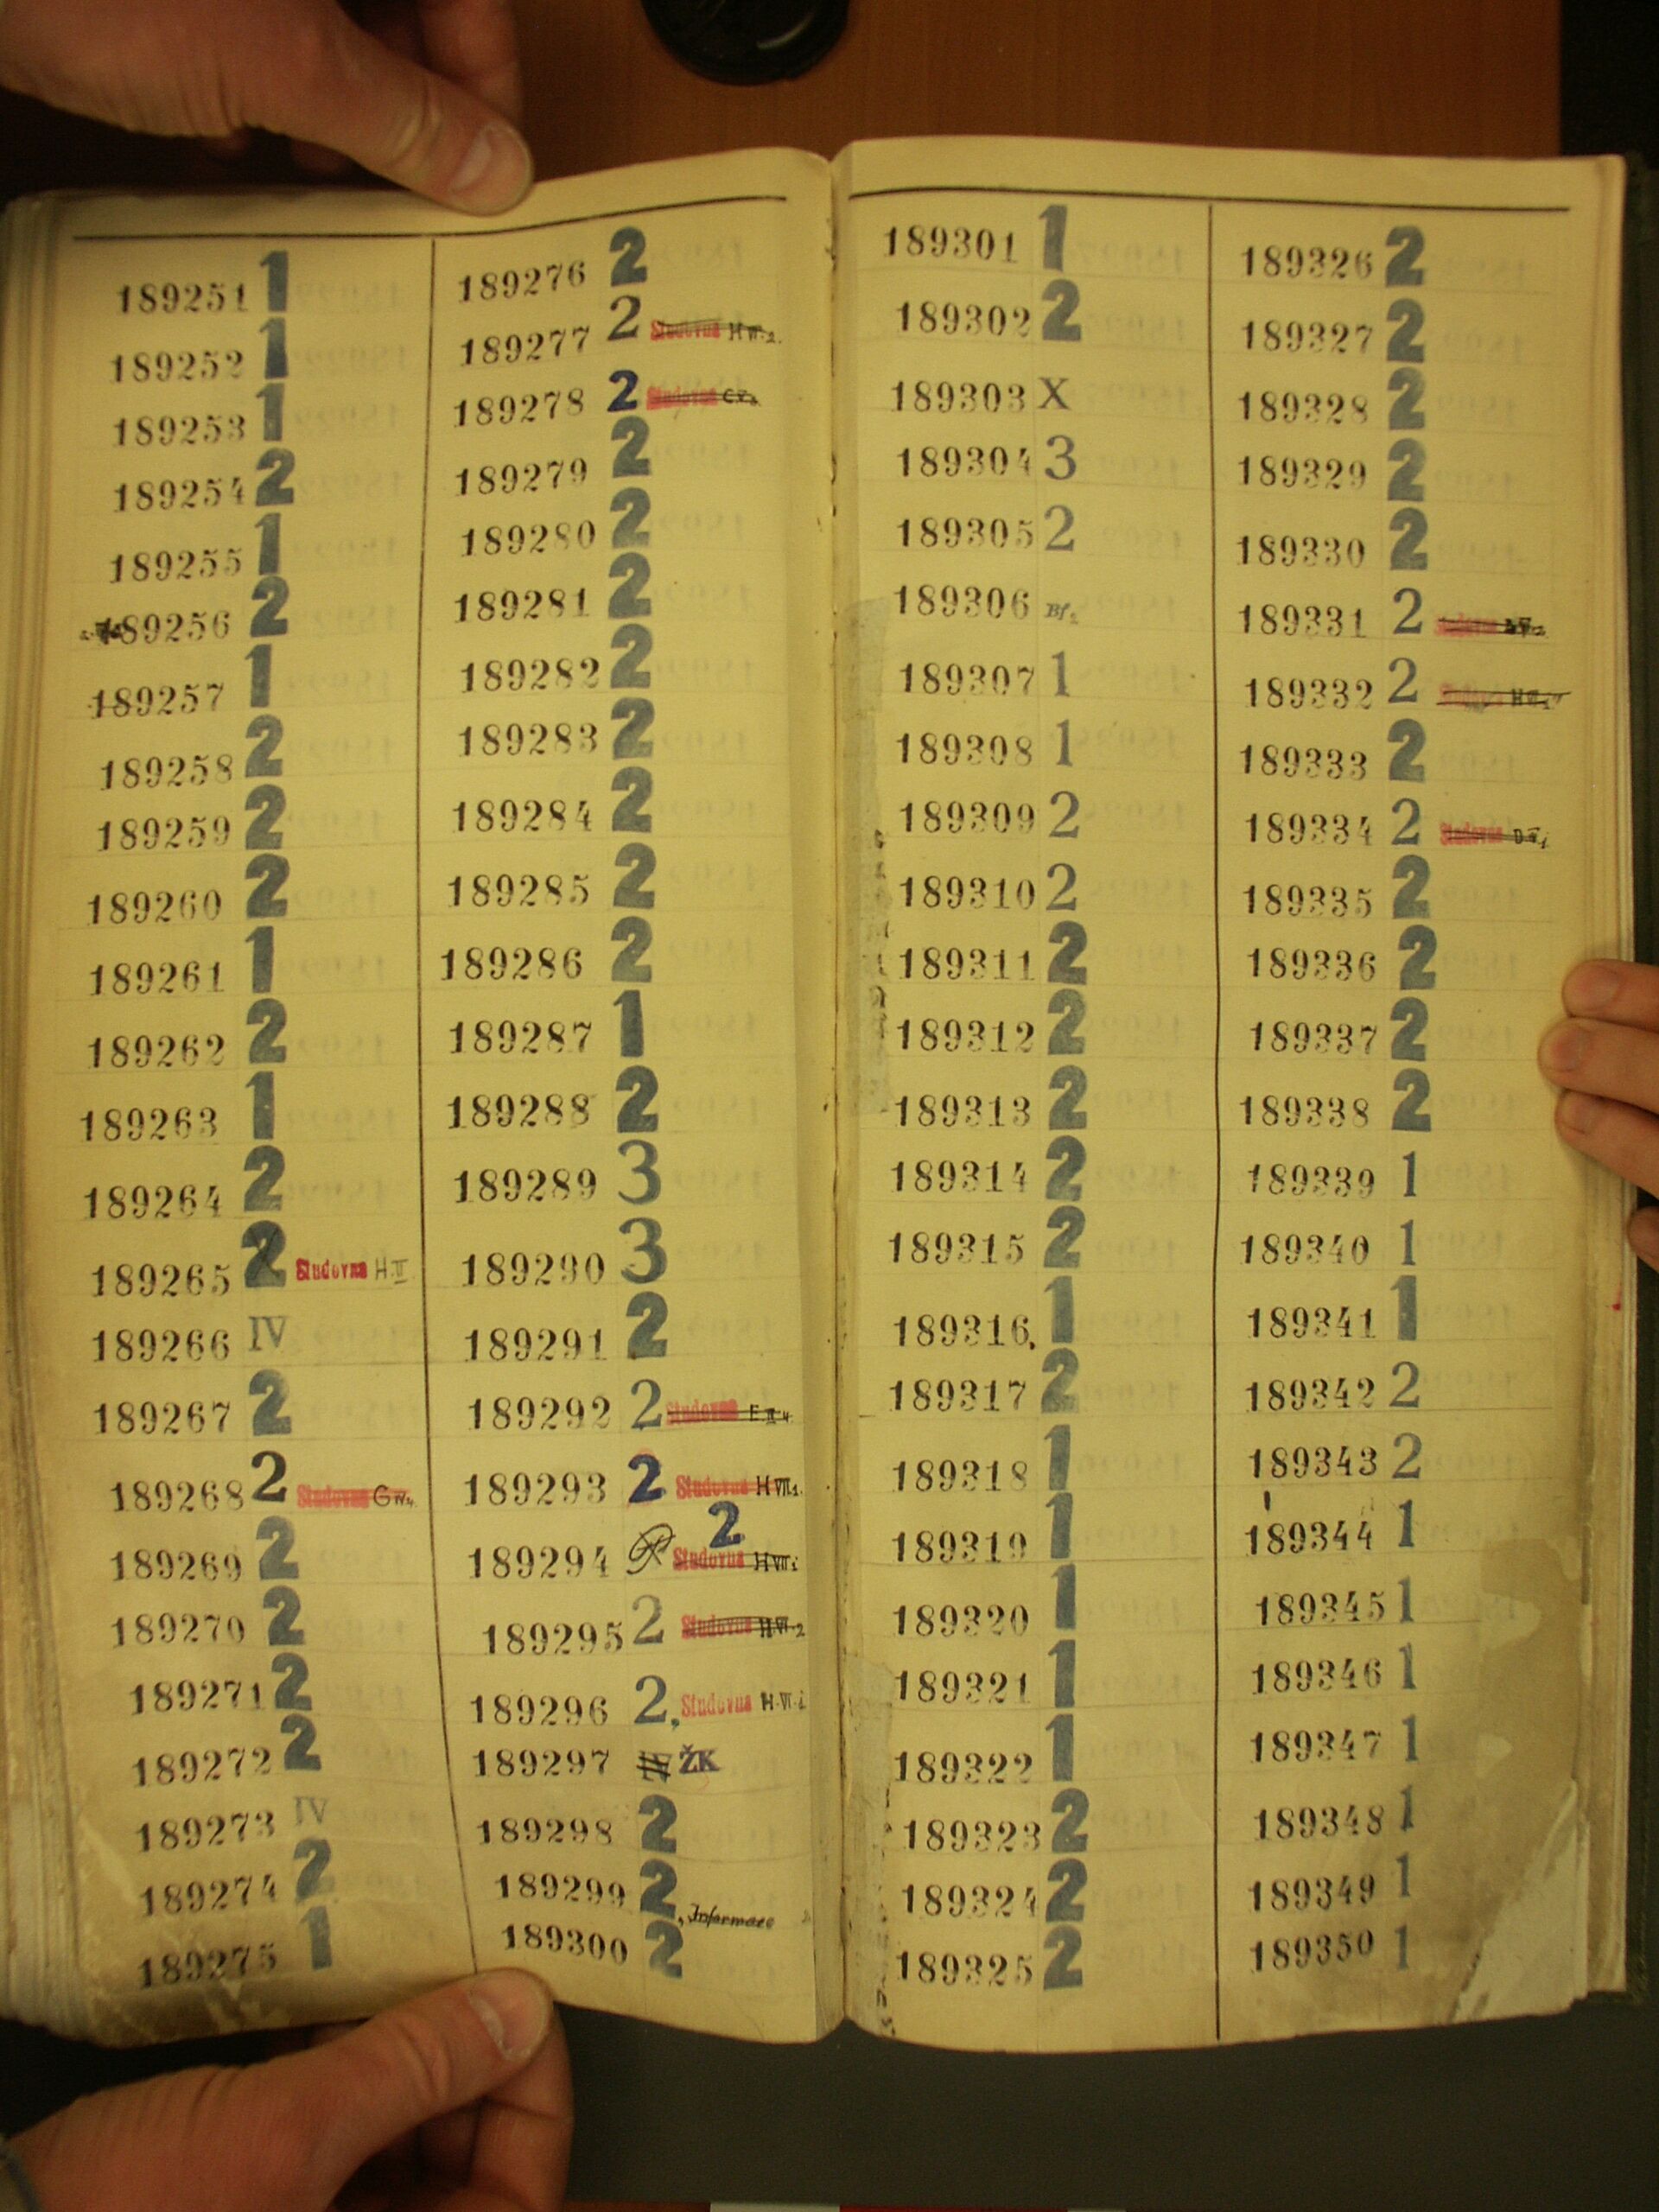 189251 1
189252 1
189253 1
189254 2
189255 1
189256 2
189257 1
189258 2
189259 2
189260 2
189261 1
189262 2
189263 1
189264 2
189265 2 Studovna H.II
189266 IV
189267 2
189268 2 Studovna G IV.4
189269 2
189270 2
189271 2
189272 2
189273 IV
189274 2
189275 1
189276 2
189277 2 Studovna H
189278 2 Studovna
189279 2
189280 2
189281 2
189282 2
189283 2
189284 2
189285 2
189286 2
189287 1
189288 2
189289 3
189290 3
189291 2
189292 2 Studovna E
189293 2 Studovna H VII.1
2
189294 Studovna H VII.1
189295 2 Studovna H VI.2
189296 2 Studovna H.VI.1
189297 ŽK
189298 2
189299 2
Informace
189300 2
189301 1
189302 2
189303 X
189304 3
189305 2
189306
189307 1
189308 1
189309 2
189310 2
189311 2
189312 2
189313 2
189314 2
189315 2
189316 1
189317 2
189318 1
189319 1
189320 1
189321 1
189322 1
189323 2
189324 2
189325 2
189326 2
189327 2
189328 2
189329 2
189330 2
189331 2
189332 2
189333 2
189334 2 Studovna
189335 2
189336 2
189337 2
189338 2
189339 1
189340 1
189341 1
189342 2
189343 2
189344 1
189345 1
189346 1
189347 1
189348 1
189349 1
189350 1